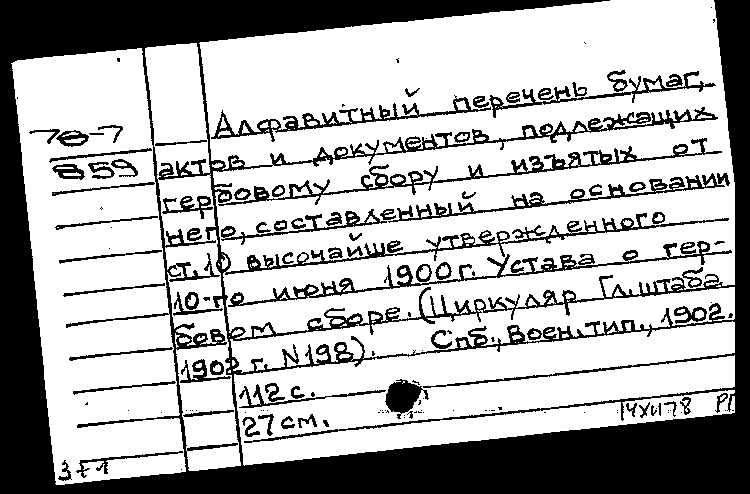 Алфавитный перечень бумаг,
70-7
859
актов и документов, подлежащих
гербовому сбору и изъятых от
него, составленный на основании
ст. 10 высочайше утвержденного
10-го июня 1900 г. Устава о гер-
бовом сборе. (Циркуляр Гл. штаба
1902 г. N 198). Спб., Воен. тип., 1902.
112 с.
27 см.
14XII78 РП